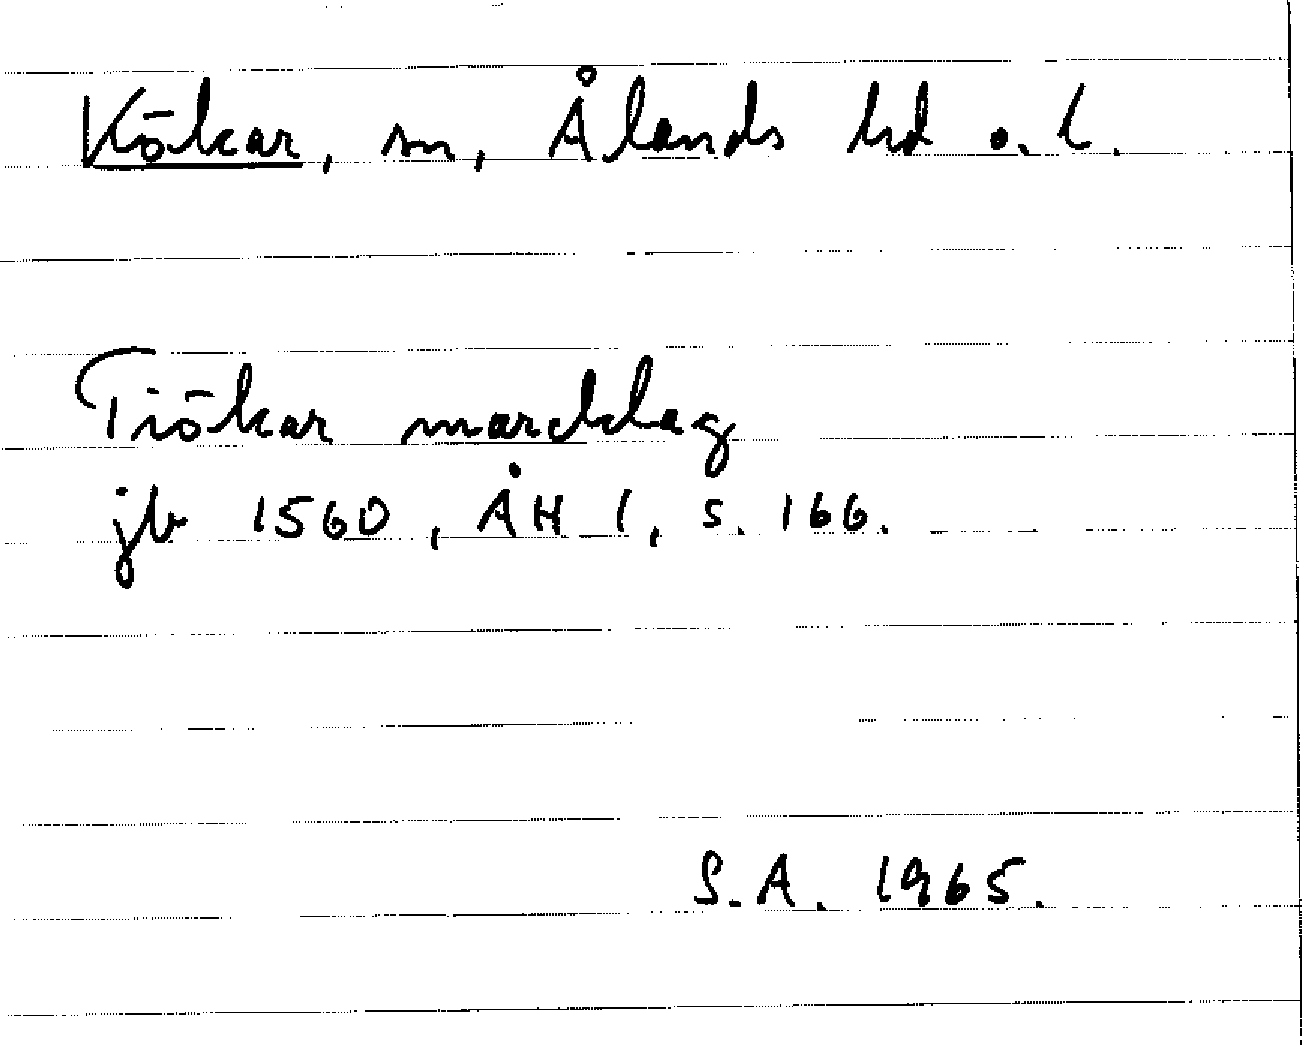 Kökar, sn, Ålands hd o. l.
Tiökar marchlag
jb 1560, ÅH 1, s. 166.
S.A. 1965.